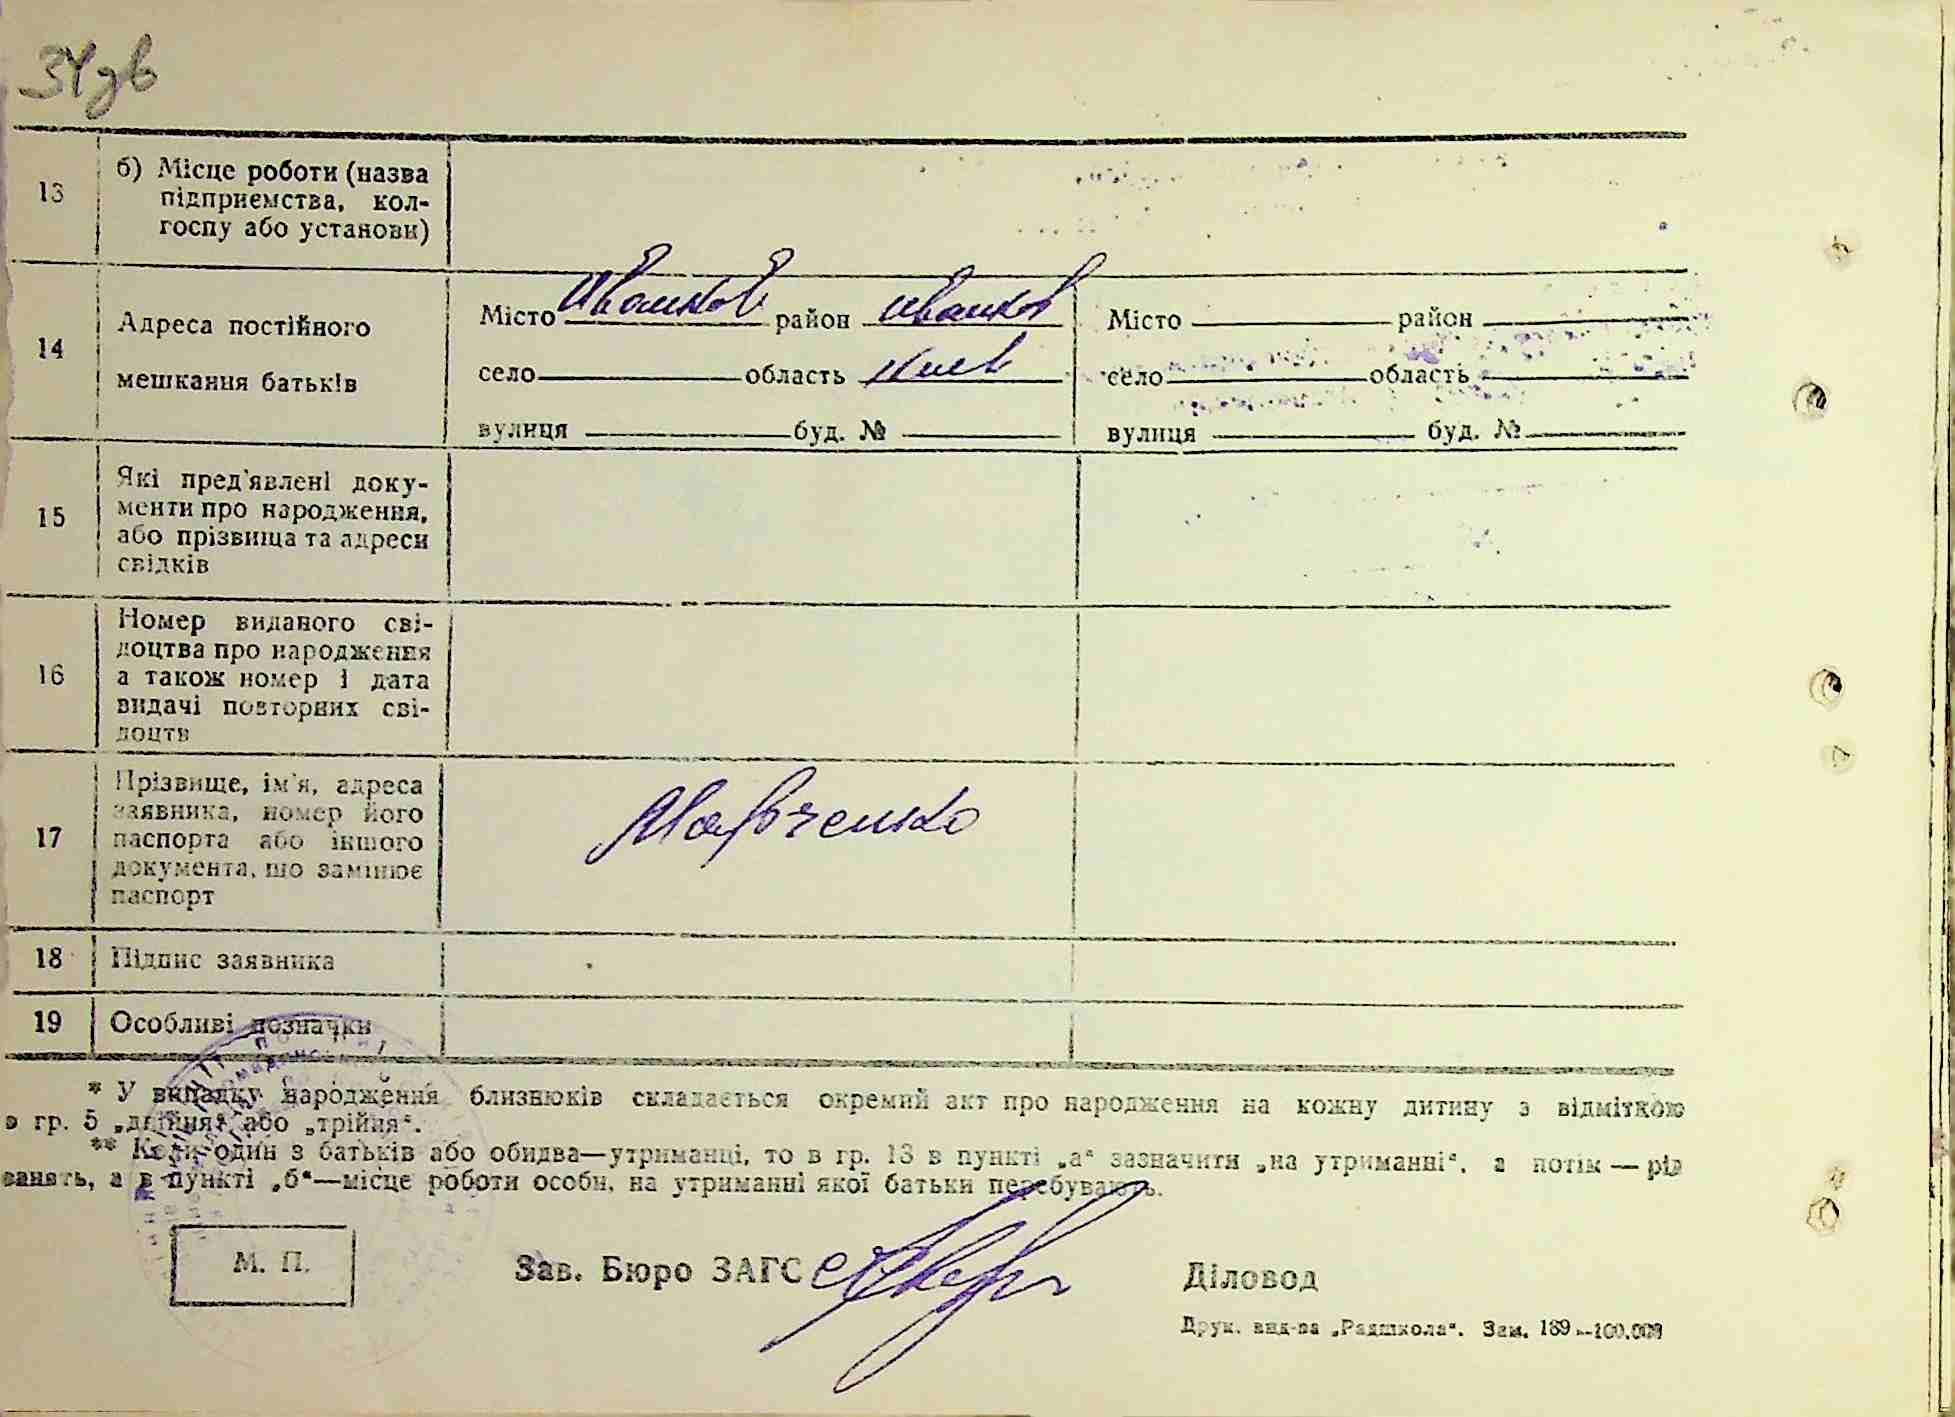 34дв
13
б) Місце роботи (назва
підприємства, кол-
госпу або установи)
14
Адреса постійного
мешкання батьків
Місто Иванков район Иванков
село область Киев
вулиця буд. №
Місто район
село область
вулиця буд. №
15
Які пред'явлені доку-
менти про народження,
або прізвища та адреси
свідків
16
Номер виданого сві-
доцтва про народження
а також номер і дата
видачі повторних сві-
доцтв
17
Прізвище, ім'я, адреса
заявника, номер його
паспорта або іншого
документа, що замінює
паспорт
18
Підпис заявника
19
Особливі позначки
* У випадку народження близнюків складається окремий акт про народження на кожну дитину з відміткою
в гр. 5 „двійня“ або „трійня“.
** Коли один з батьків або обидва—утриманці, то в гр. 13 в пункті „а“ зазначити „на утриманні“, а потім — рід
занять, а в пункті „б“—місце роботи особи, на утриманні якої батьки перебувають.
М. П.
Зав. Бюро ЗАГС
Діловод
Друк. вид-ва „Радшкола“. Зам. 189 —100.000